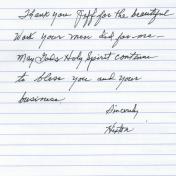 Thank you Jeff for the beautiful
work your men did for me—
May Gods Holy Spirit continue
to bless you and your
business
Sincerely